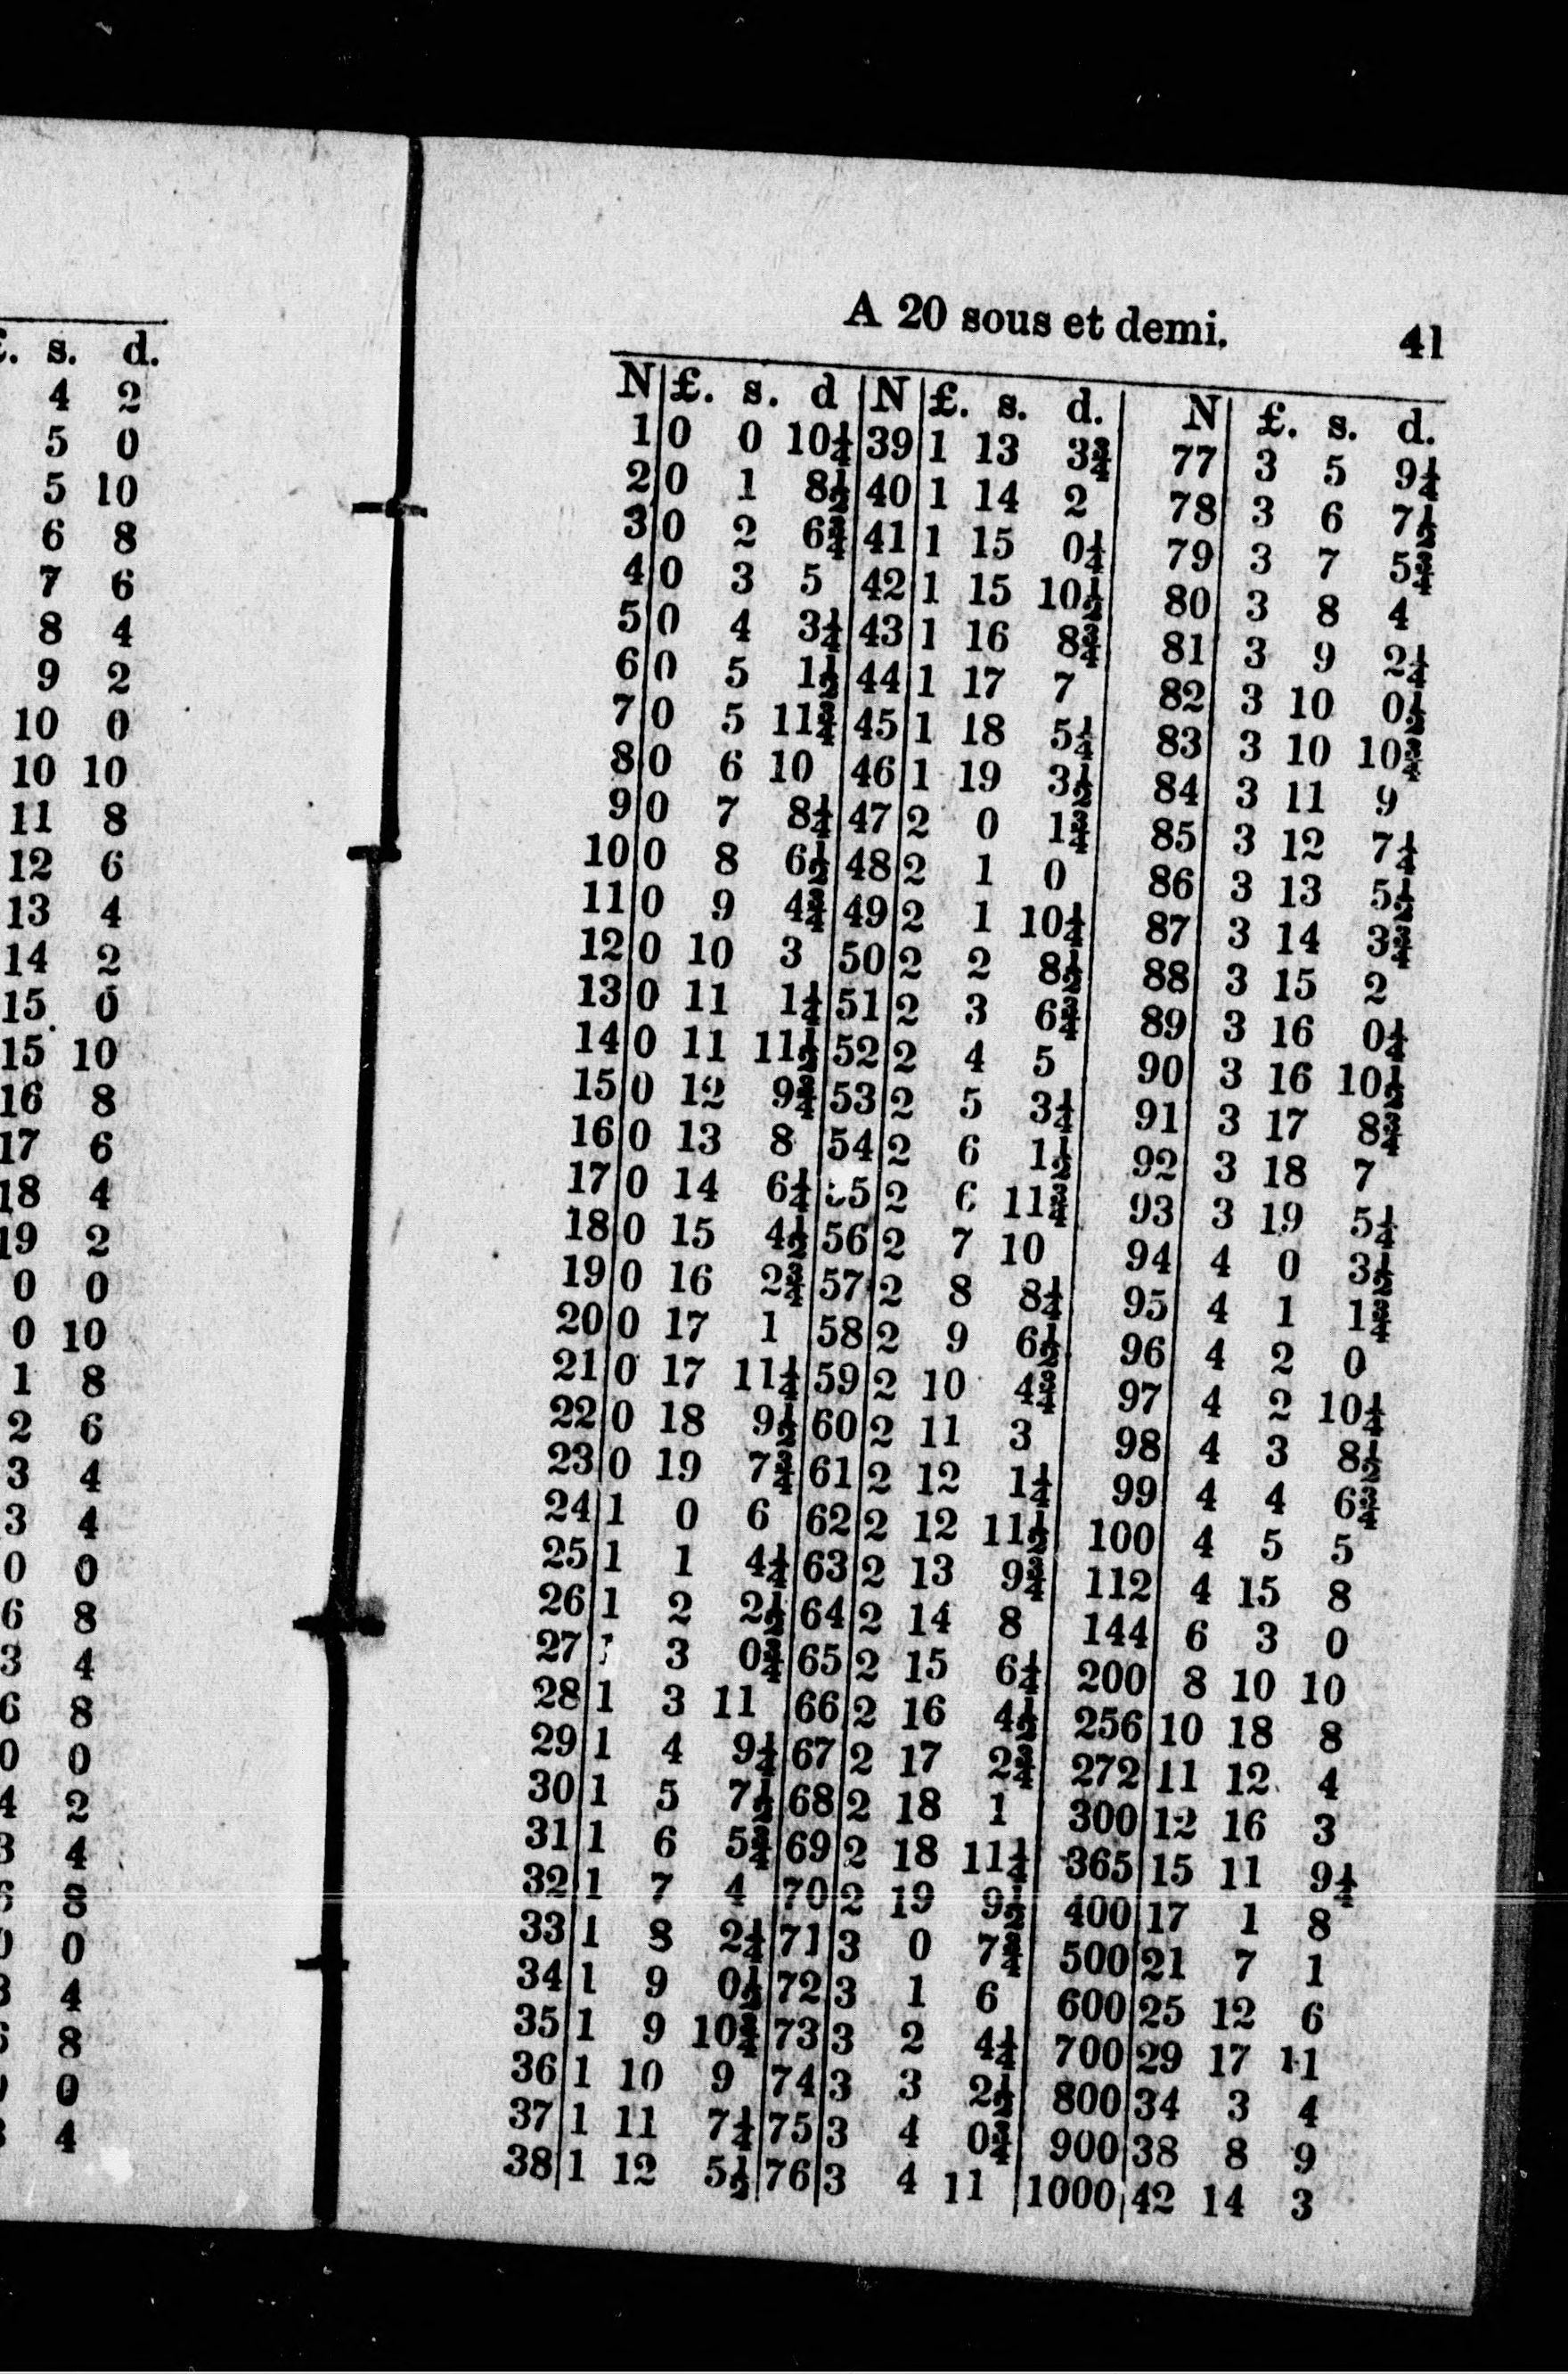 s. d.
4 2
5 0
5 10
6 8
7 6
8 4
9 2
10 0
10 10
11 8
12 6
13 4
14 2
15 0
15 10
16 8
17 6
18 4
19 2
0 0
0 10
1 8
2 6
3 4
3 4
0 0
6 8
3 4
6 8
0 0
4 2
3 4
8
0
4
8
0
4
A 20 sous et demi. 41
N £. s. d N £. s. d. N £. s. d.
1 0 0 10¼ 39 1 13 3¾ 77 3 5 9¼
2 0 1 8½ 40 1 14 2 78 3 6 7½
3 0 2 6¾ 41 1 15 0¼ 79 3 7 5¾
4 0 3 5 42 1 15 10½ 80 3 8 4
5 0 4 3¼ 43 1 16 8¾ 81 3 9 2¼
6 0 5 1½ 44 1 17 7 82 3 10 0½
7 0 5 11¾ 45 1 18 5¼ 83 3 10 10¾
8 0 6 10 46 1 19 3½ 84 3 11 9
9 0 7 8¼ 47 2 0 1¾ 85 3 12 7¼
10 0 8 6½ 48 2 1 0 86 3 13 5½
11 0 9 4¾ 49 2 1 10¼ 87 3 14 3¾
12 0 10 3 50 2 2 8½ 88 3 15 2
13 0 11 1¼ 51 2 3 6¾ 89 3 16 0¼
14 0 11 11½ 52 2 4 5 90 3 16 10½
15 0 12 9¾ 53 2 5 3¼ 91 3 17 8¾
16 0 13 8 54 2 6 1½ 92 3 18 7
17 0 14 6¼ 55 2 6 11¾ 93 3 19 5¼
18 0 15 4½ 56 2 7 10 94 4 0 3½
19 0 16 2¾ 57 2 8 8¼ 95 4 1 1¾
20 0 17 1 58 2 9 6½ 96 4 2 0
21 0 17 11¼ 59 2 10 4¾ 97 4 2 10¼
22 0 18 9½ 60 2 11 3 98 4 3 8½
23 0 19 7¾ 61 2 12 1¼ 99 4 4 6¾
24 1 0 6 62 2 12 11½ 100 4 5 5
25 1 1 4¼ 63 2 13 9¾ 112 4 15 8
26 1 2 2½ 64 2 14 8 144 6 3 0
27 1 3 0¾ 65 2 15 6¼ 200 8 10 10
28 1 3 11 66 2 16 4½ 256 10 18 8
29 1 4 9¼ 67 2 17 2¾ 272 11 12 4
30 1 5 7½ 68 2 18 1 300 12 16 3
31 1 6 5¾ 69 2 18 11¼ 365 15 11 9¼
32 1 7 4 70 2 19 9½ 400 17 1 8
33 1 8 2¼ 71 3 0 7¾ 500 21 7 1
34 1 9 0½ 72 3 1 6 600 25 12 6
35 1 9 10¾ 73 3 2 4¼ 700 29 17 11
36 1 10 9 74 3 3 2½ 800 34 3 4
37 1 11 7¼ 75 3 4 0¾ 900 38 8 9
38 1 12 5½ 76 3 4 11 1000 42 14 3